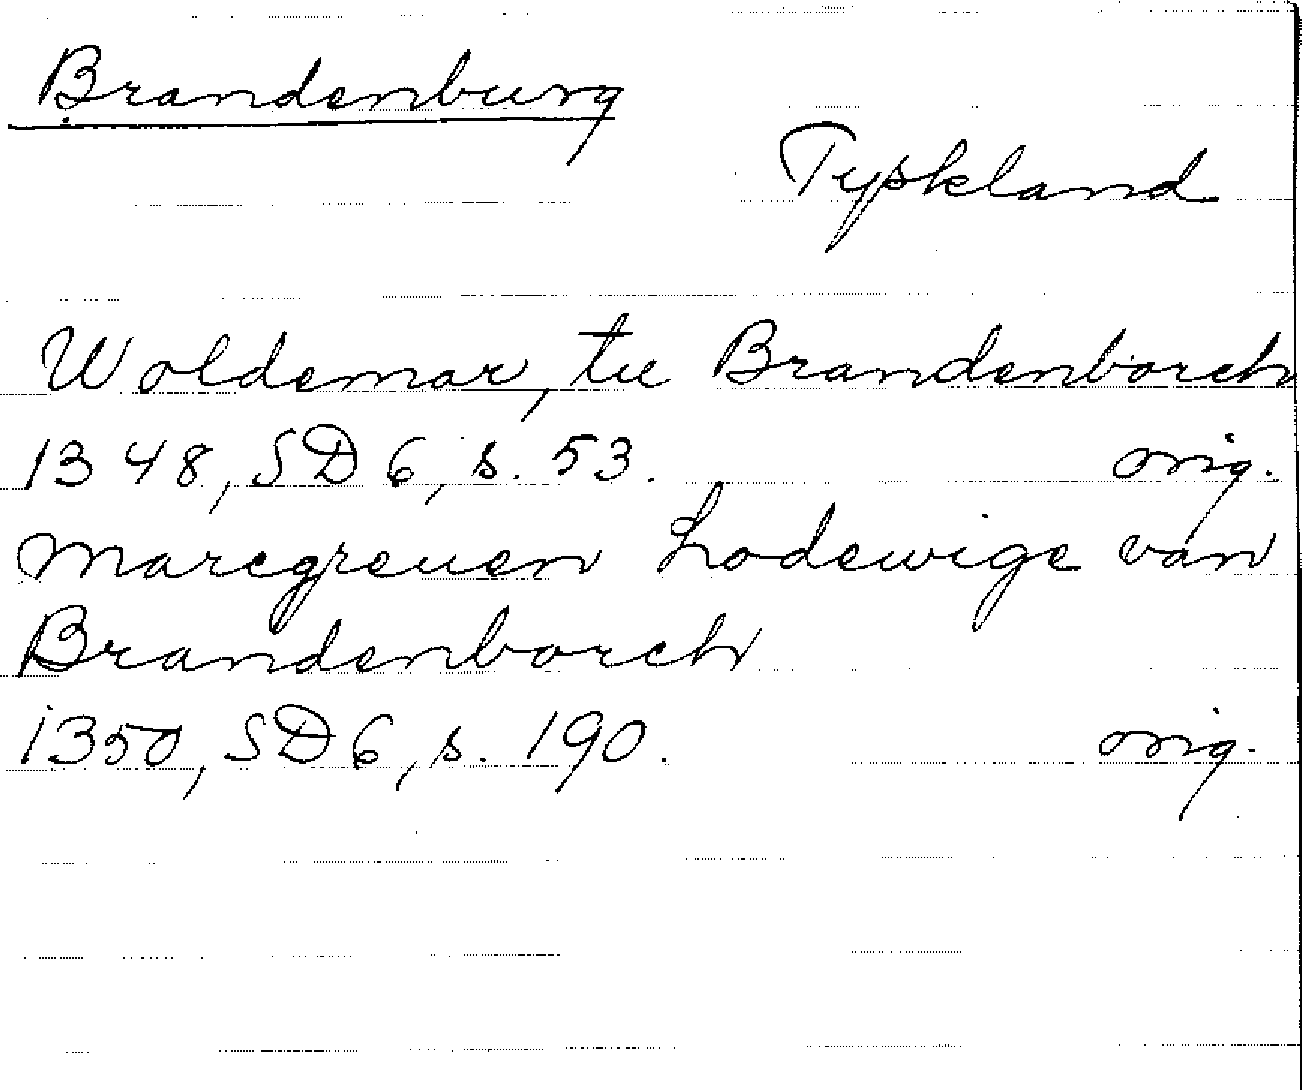 Brandenburg
Tyskland
Woldemar, tu Brandenborch
1348, SD 6, s. 53. orig.
marcgreuen Lodewige van
Brandenborch
1350, SD 6, s. 190. orig.